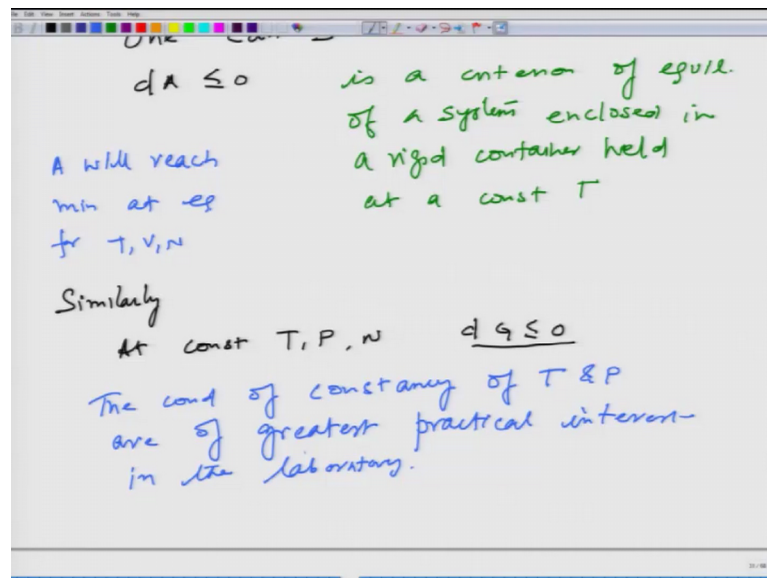 File Edit View Insert Actions Tools Help
One can
dA ≤ 0 is a criterion of equil.
of a system enclosed in
a rigid container held
at a const T
A will reach
min at eq
for T, V, N
Similarly
At const T, P, N dG ≤ 0
The cond of constancy of T & P
are of greatest practical interest
in the laboratory.